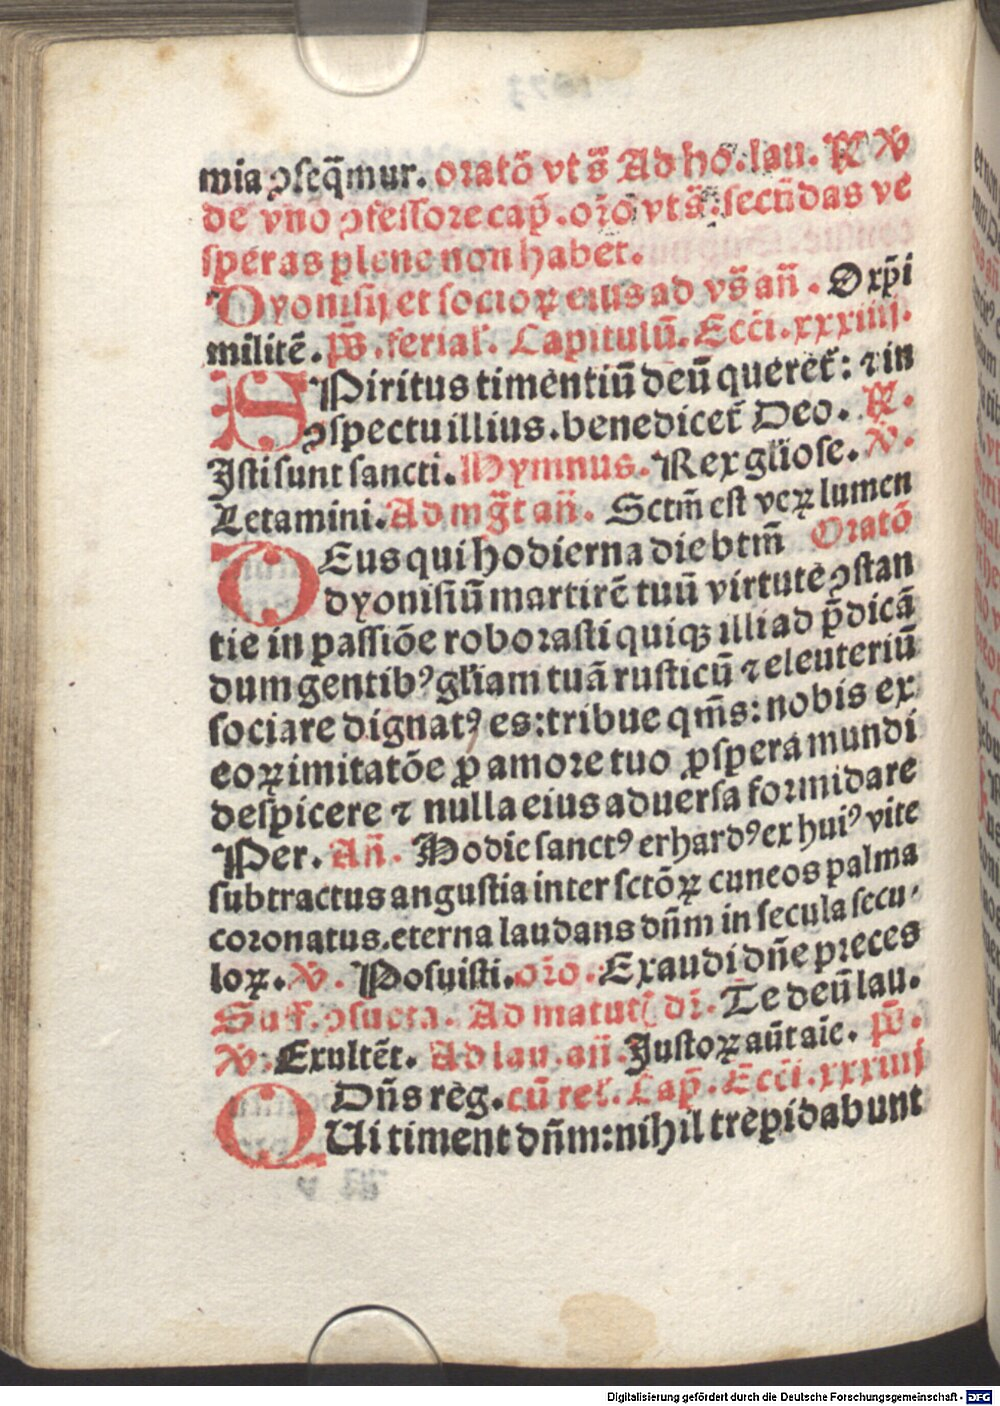 mia ꝯſeq̃mur. oratõ vt s̃ Ad ho. lau. ℟ ℣
de vno ꝯfeſſore cap̃. or̃o vt s̃: ſecũdas ve
ſperas plene non habet.
Dyoniſij et ſocioꝝ eius ad vs̃ añ. O xp̃i
militẽ. ps̃. ferial'. Capitulũ. Ecci. xxxiiij.
SPiritus timentiũ deũ queret̃: ⁊ in
ꝯſpectu illius. benedicet̃ Deo. ℟.
Iſti ſunt ſancti. Hymnus. Rex gl̃ioſe. ℣.
Letamini. Ad mg̃t añ. Sctm̃ eſt veꝝ lumen
DEus qui hodierna die btm̃ Oratõ
dyoniſiũ martirẽ tuũ virtute ꝯſtan
tie in paſſiõe roboraſti quiqꝫ illi ad p̃dicã
dum gentibꝰ gl̃iam tuã ruſticũ ⁊ eleuteriũ
ſociare dignatꝰ es: tribue qm̃s: nobis ex
eoꝝ imitatõe ꝓ amore tuo ꝓſpera mundi
deſpicere ⁊ nulla eius aduerſa formidare
Per. Añ. Hodie ſanctꝰ erhardꝰ ex huiꝰ vite
ſubtractus anguſtia inter ſctõꝝ cuneos palma
coronatus. eterna laudans dñm in ſecula ſecu
loꝝ. ℣. Poſuiſti. oro. Exaudi dñe preces
Suff. ꝯſueta. Ad matut̃ di. Te deũ lau.
℣. Exultẽt. Ad lau. añ. Juſtoꝝ aũt aie. ps̃.
Dñs reg̃. cũ rel'. Cap̃. Ecci. xxxiiij
QUi timent dñm: nihil trepidabunt
Digitalisierung gefördert durch die Deutsche Forschungsgemeinschaft - DFG